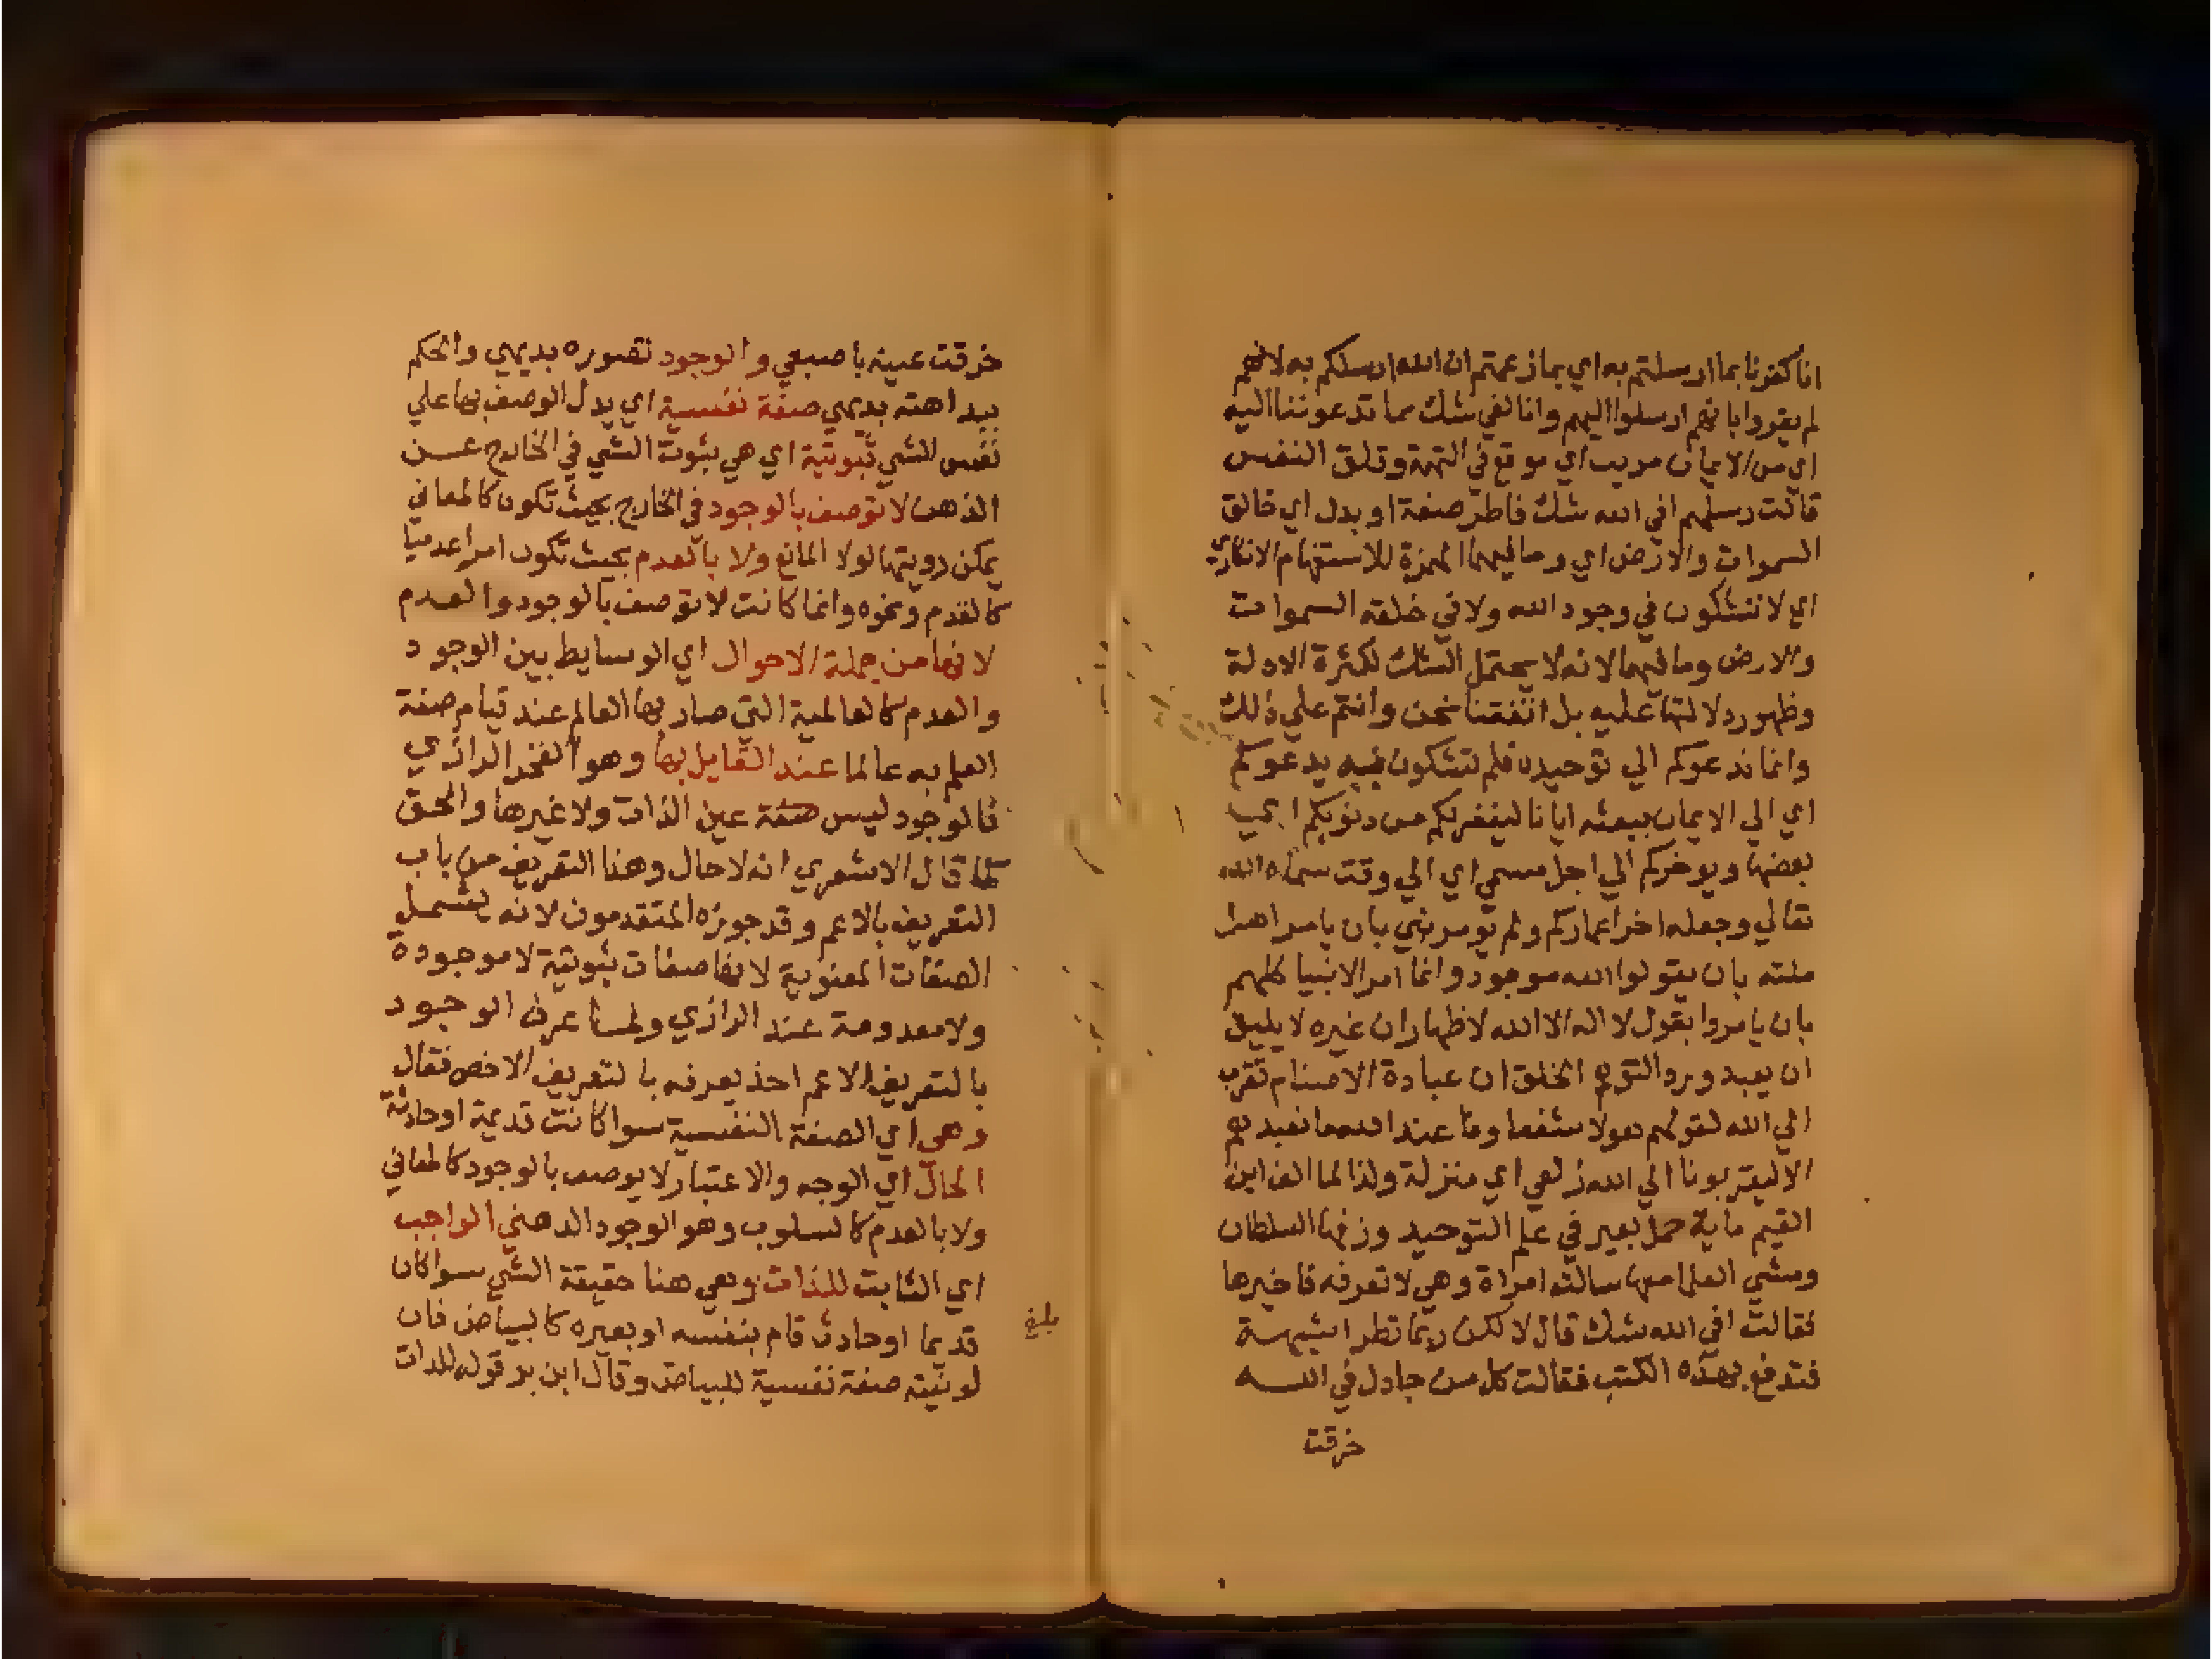 انا كفرنا بما ارسلتم به اي بما زعمتم ان الله ارسلكم به لانهم
لم يقروا بانهم ارسلوا اليهم وانا لفي شك مما تدعوننا اليه
اي من الايمان مريب اي موقع في التهمة وقلق النفس
قالت رسلهم افي الله شك فاطر صفة او بدل اي خالق
السموات والارض اي وما فيهما الهمزة للاستفهام الانكاري
اي لا نتشكون في وجود الله ولا في خلقه السموات
والارض وما فيهما لانه لا يحتمل الشك لكثرة الادلة
وظهور دلالتها عليه بل اتفقنا نحن وانتم علي ذلك
وانما ندعوكم الي توحيده فلم تتشكون فيه يدعوكم
اي الي الايمان ببعثه ايانا ليغفر لكم من ذنوبكم اي
بعضها ويوخركم الي اجل مسمي اي الي وقت سماه الله
تعالي وجعله اخر اعماركم ولم يومر نبي بان يامر اهل
ملته بان يقولوا الله موجود وانما امر الانبيا كلهم
بان يامروا بقول لا اله الا الله لاظهار ان غيره لا يليق
ان يعبد ويرد التوهم الخلق ان عبادة الاصنام تقرب
الي الله لقولهم هولا شفعاونا عند الله ما نعبدهم
الا ليقربونا الي الله زلفي اي منزلة ولذا لما الف ابن
القيم ماية حمل بعير في علم التوحيد وزفها السلطان
ومشي العلما معها سالته امراة وهي لا تعرفه فاخبرها
فقالت افي الله شك قال لا لكن ربما تطرا شبهة
فتدفع بهذه الكتب فقالت كل من جادل في الله
خرقت
خرقت عينه باصبعي والوجود تصوره بديهي والحكم
ببداهته بديهي صفة نفسية اي يدل الوصف بها علي
نفس الشي ثبوتية اي هي ثبوت الشي في الخارج عن
الذهن لا توصف بالوجود في الخارج بحيث تكون كالمعاني
يمكن رويتها لولا المانع ولا بالعدم بحيث تكون امرا عدميا
كالقدم ونحوه وانما كانت لا توصف بالوجود والعدم
لانها من جملة الاحوال اي الوسايط بين الوجود
والعدم كالعالمية التي صار بها العالم عند قيام صفة
العلم به عالما عند القايل بها وهو الفخر الرازي
فالوجود ليس صفة عين الذات ولا غيرها والحق
كما قال الاشعري انه لا حال وهذا التعريف من باب
التعريف بالاعم وقد جوزه المتقدمون لانه يشمل
الصفات المعنوية لانها صفات ثبوتية لا موجودة
ولا معدومة عند الرازي ولما عرف الوجود
بالتعريف الاعم اخذ يعرفه بالتعريف الاخص فقال
وهي اي الصفة النفسية سوا كانت قديمة او حادثة
الحال اي الوجه والاعتبار لا يوصف بالوجود كالمعاني
ولا بالعدم كالسلوب وهو الوجود الذهني الواجب
اي الثابت للذات وهي هنا حقيقة الشي سوا كان
قديما او حادث قام بنفسه او بغيره كالبياض فان
لونيته صفة نفسية للبياض وقال ابن بر قوله للذات
بلغ